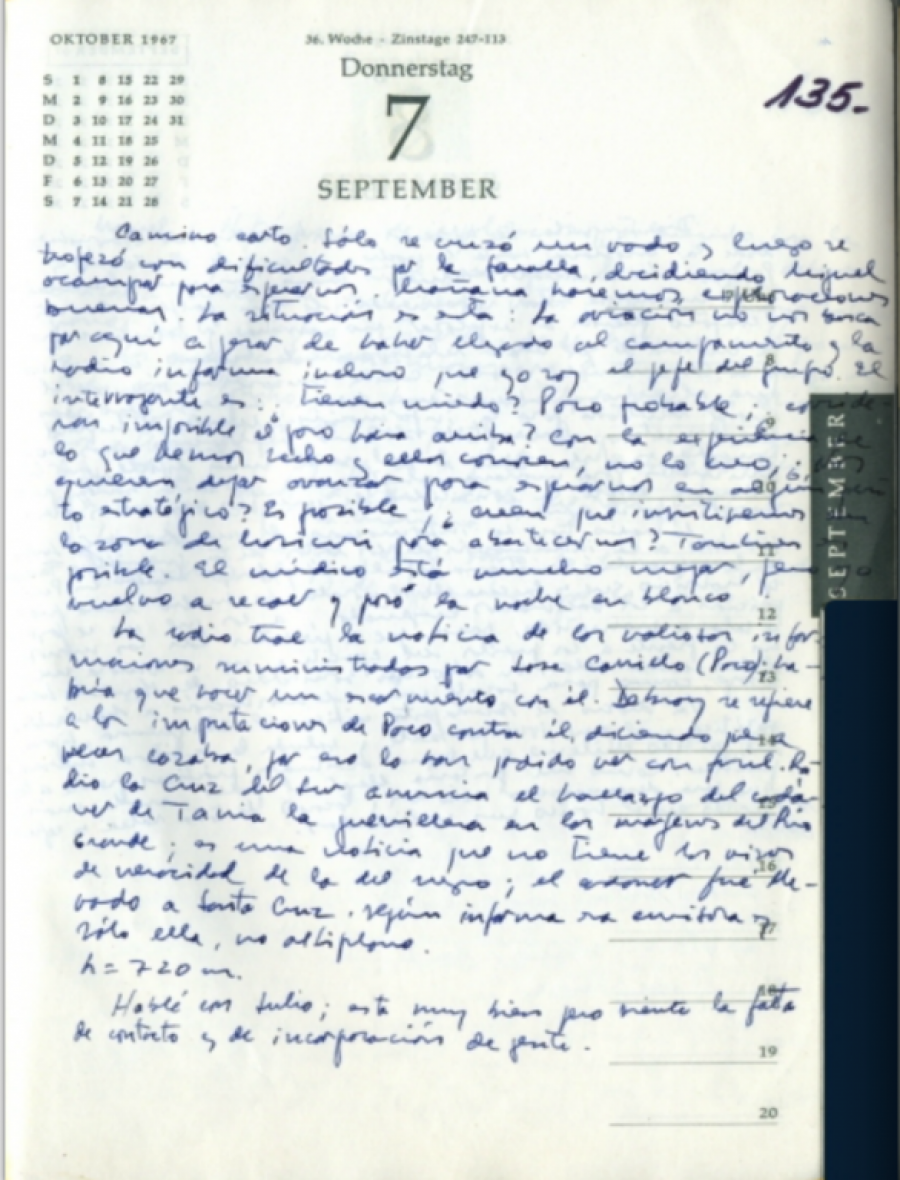 OKTOBER 1967
S 1 8 15 22 29
M 2 9 16 23 30
D 3 10 17 24 31
M 4 11 18 25
D 5 12 19 26
F 6 13 20 27
S 7 14 21 28
36. Woche - Zinstage 247-113
Donnerstag
7
SEPTEMBER
135.
Camino corto. Sólo se cruzó un vado y luego se
tropezó con dificultades por la faralla, decidiendo Miguel
acampar para esperarnos. Mañana haremos exploraciones
buenas. La situación es esta: La aviación no nos busca
por aquí a pesar de haber llegado al campamento y la
radio informa incluso que yo soy el jefe del grupo. El
interrogante es: tienen miedo? Poco probable; conside-
ran imposible el paso hacia arriba? Con la experiencia de
lo que hemos hecho y ellos conocen, no lo creo; nos
quieren dejar avanzar para esperarnos en algún pun
to estratégico? Es posible; creen que insistiremos en
la zona de Masicuri para abastecernos? También es
posible. El médico está mucho mejor, pero yo
vuelvo a recaer y pasé la noche en blanco
La radio trae la noticia de las valiosas infor-
maciones suministradas por José Carrillo (Paco); ha-
bría que hacer un escarmiento con él. Debray se refiere
a las imputaciones de Paco contra él, diciendo que a
veces cazaba, por eso lo han podido ver con fusil. Ra-
dio la Cruz del Sur anuncia el hallazgo del cadá
ver de Tania la guerrillera en las márgenes del Río
Grande; es una noticia que no tiene los visos
de veracidad de la del negro; el cadáver fue lle-
vado a Santa Cruz, según informa esa emisora y
sólo ella, no altiplano.
h = 720 m.
Hablé con Julio; está muy bien pero siente la falta
de contacto y de incorporación de gente.
8
9
10
11
12
13
14
15
16
17
18
19
20
SEPTEMBER